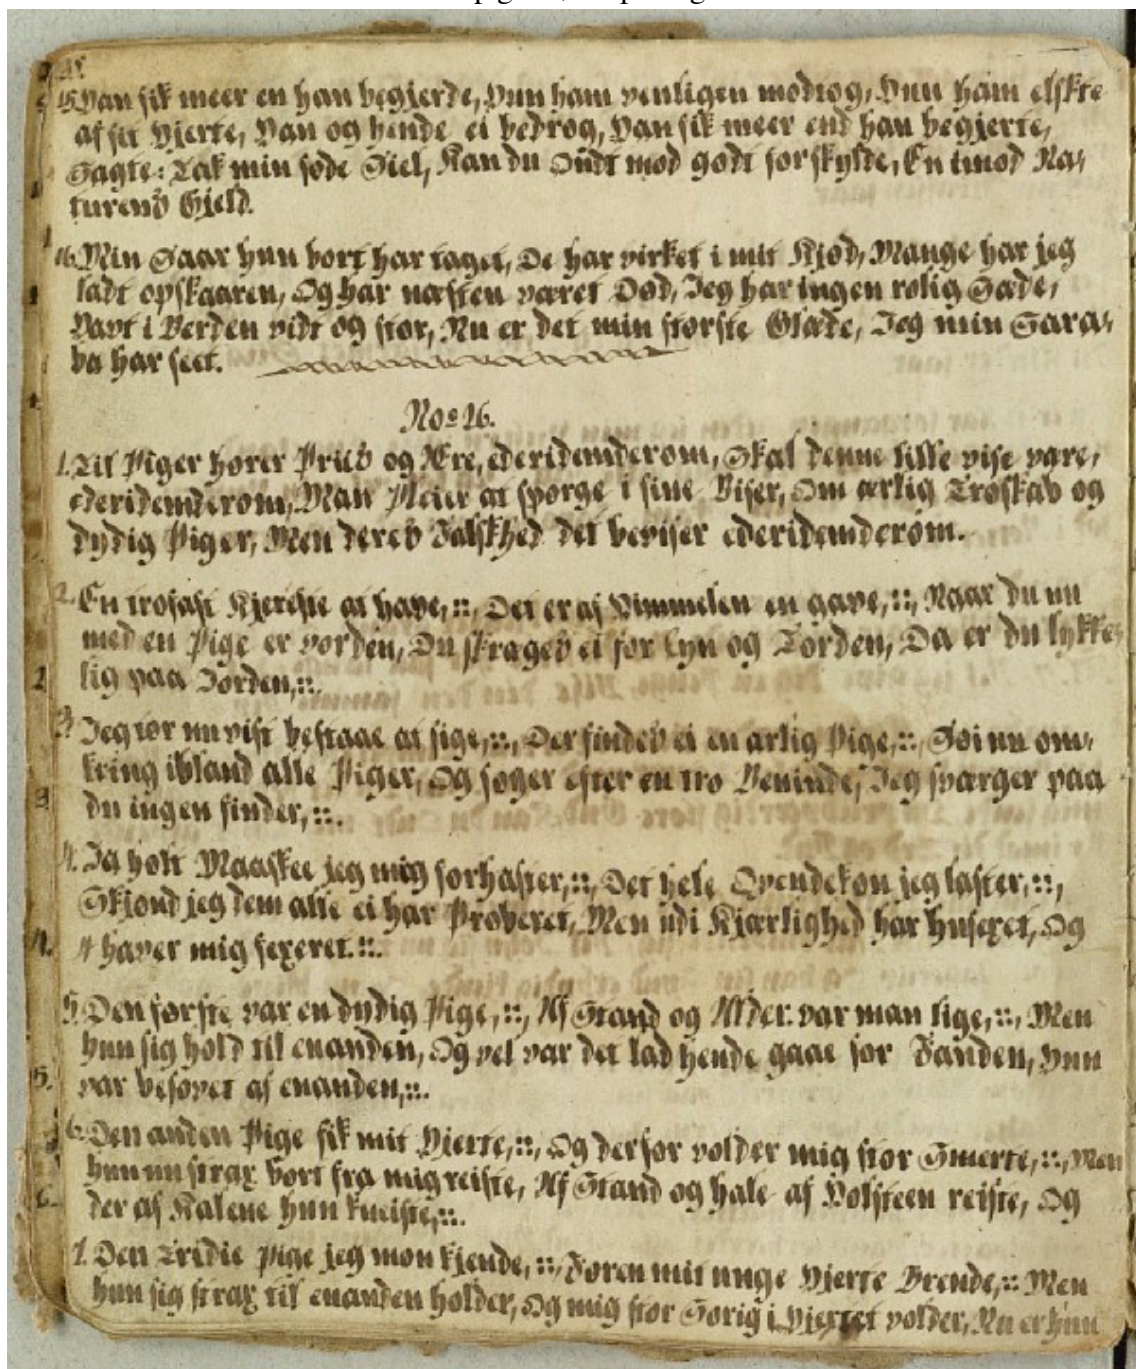 15. Han fik meer en han begjerde, Hun ham venligen modtog, Hun ham elskte
af sit Hjerte, Han og hende ei bedrog, Han fik meer end han begjerte,
Sagte: Tak min søde Siel, Kan du Ondt mod godt forskylde, En imod Na,
turens Gjeld.
16. Min Saar hun bort har taget, De har virket i mit Kjød, Mange har jeg
ladt opskaaren, Og har næsten været Død, Jeg har ingen rolig Sæde,
i Verden vidt og stor, Nu er det min største Glæde, Jeg min Sara,
ba har seet.
No= 26.
1. Til Piger hører Priis og Ære, ederidemderom, Skal denne lille vise være,
ederidemderom, Man Pleier at spørge i sine Viser, Om ærlig Troskab og
dydig Piger, Men deres Falskhed det beviser ederidemderom.
2. En trofast Kjereste at have, :: , Det er af Himmelen en gave, :: , Naar du nu
med en Pige er vorden, Du ei for Lyn og Torden, Da er du lykke,
lig paa Jorden, :: .
3. Jeg tør nu vist bestaae at sige, :: , Der findes ei en ærlig Pige, :: , nu om,
kring ibland alle Piger, Og søger efter en tro Veninde, Jeg sværger paa
du ingen finder, :: .
4. Ja holt Maaskee jeg mig forhaster, :: , Det hele Qvendekøn jeg laster, :: ,
Skjønd jeg dem alle ei har Proberet, Men udi Kjærlighed har huseret, Og
4 haver mig fexeret. :: .
5. Den første var en dydig Pige, :: , Af Stand og Alder var man lige, :: , Men
hun sig hold til enanden, Og vel var det lad hende gaae for Fanden, Hun
var besovet af enanden, :: .
6. Den anden Pige fik mit Hjerte, :: , Og derfor volder mig stor Smerte, :: , Men
hun nu strax bort fra mig reiste, Af Stand og hale af Holsteen reiste, Og
der af Kalene hun kneiste, :: .
7. Den Tredie Pige jeg mon kjende, :: , Foren mit unge Hjerte Brende, :: Men
hun sig strax til enanden holder, Og mig stor Sorig i Hjertet volder, Nu er hun